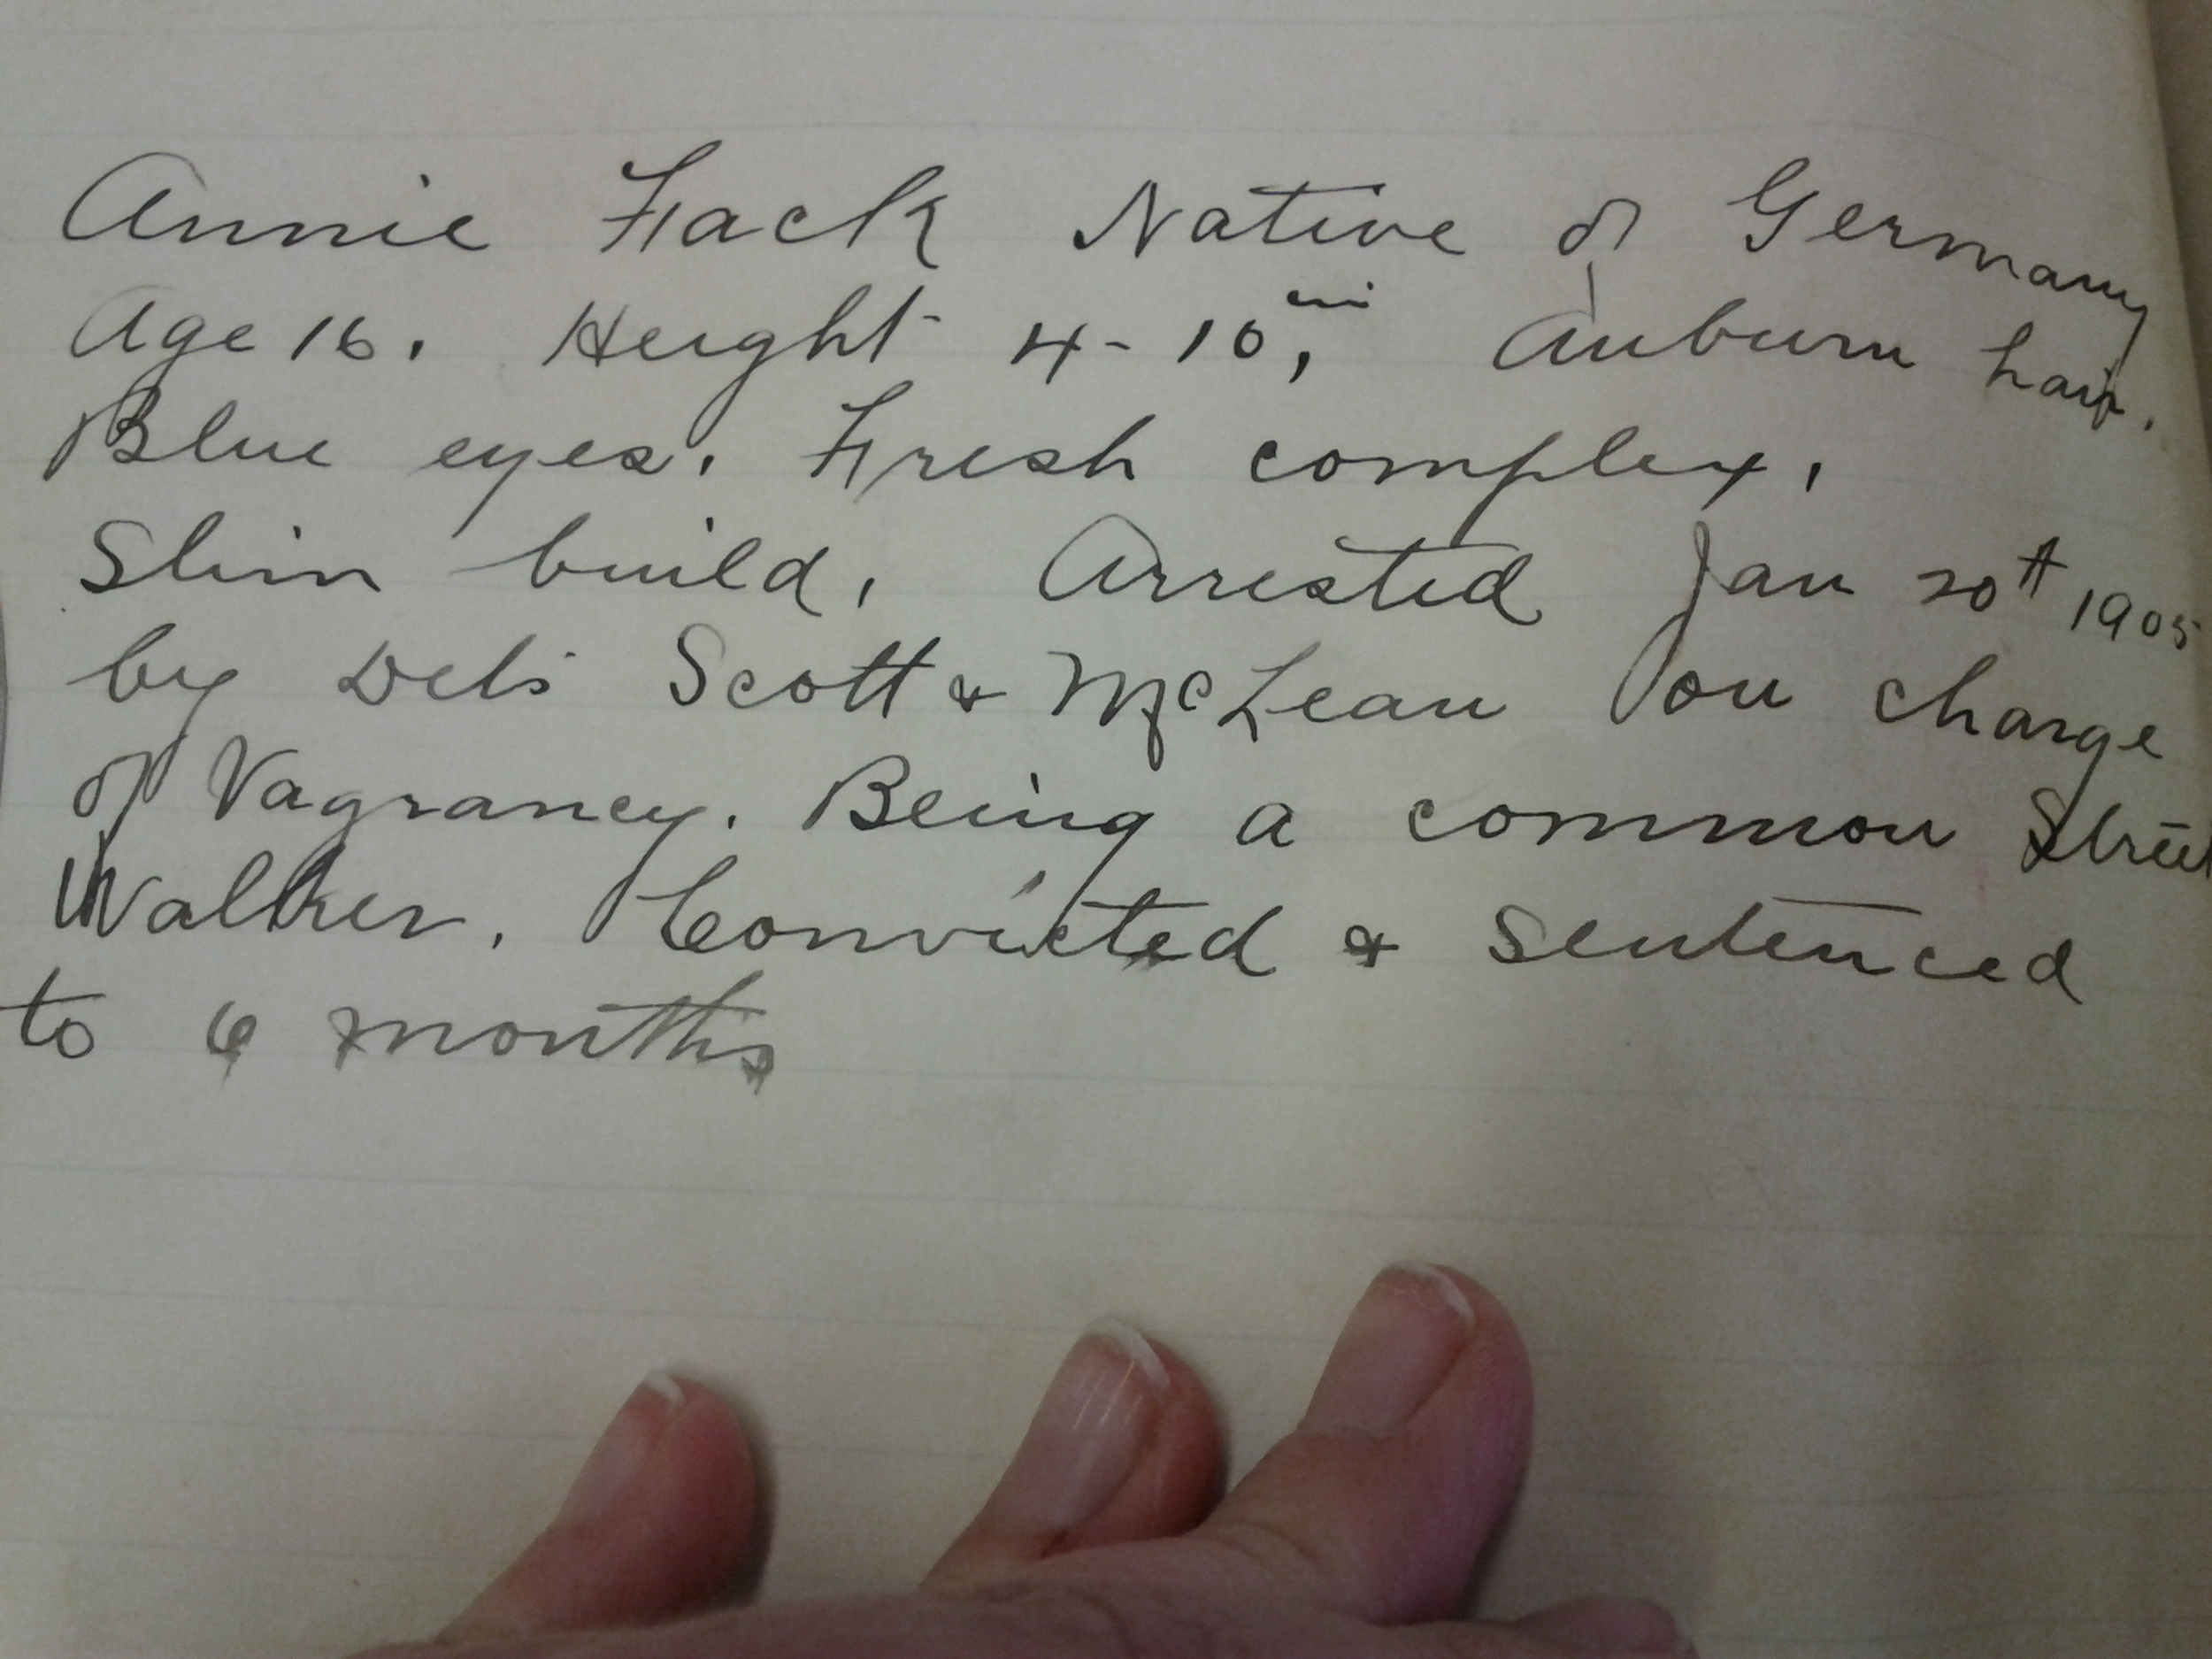 Annie Fack Native of Germany
Age 16. Height 4-10 in, Auburn hair.
Blue eyes. Fresh complex.
Slim build. Arrested Jan 20th 1905
by Dets Scott & McLean on charge
of Vagrancy. Being a common Street
Walker. Convicted & sentenced
to 6 months